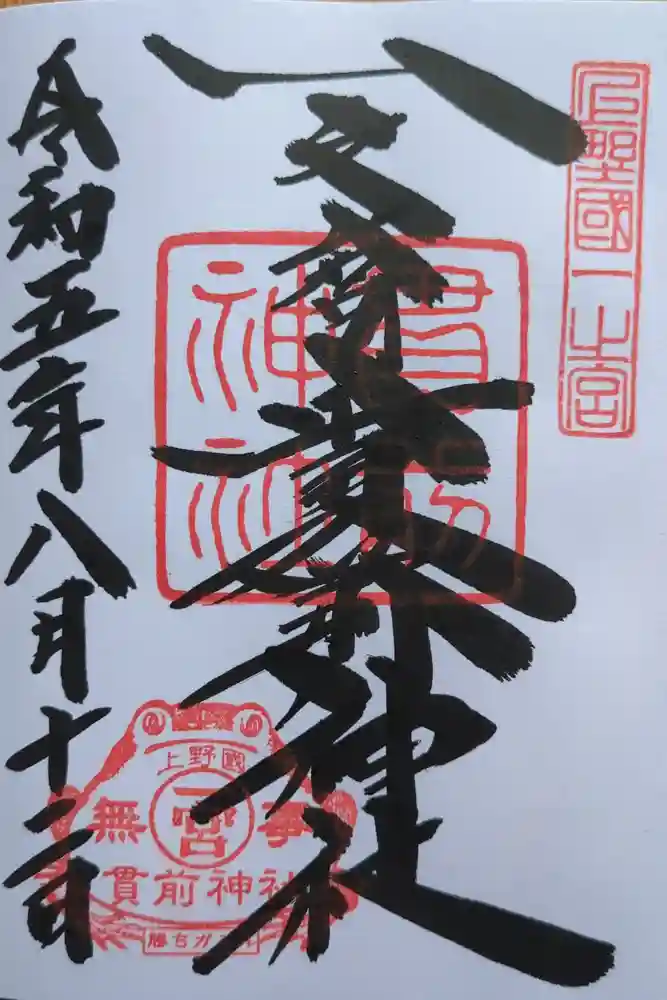 上野國一之宮
一之宮貫前神社
貫前
神社
令和五年八月十二日
上野國
無一宮事
貫前神社
勝ちガエル